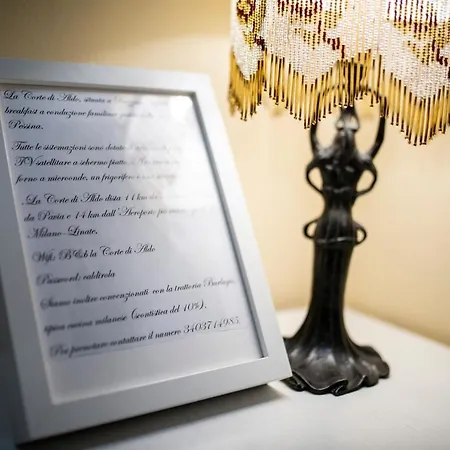 La Corte di Aldo, situata a
breakfast a conduzione familiare
Pessina.
Tutte le sistemazioni sono dotate
TV satellitare a schermo piatto,
forno a microonde, un frigorifero
La Corte di Aldo dista 11 km da
da Pavia e 14 km dall'Aeroporto più
Milano-Linate.
Wifi: B&b la Corte di Aldo
Password: caldirola
Siamo inoltre convenzionati con la trattoria
tipica cucina milanese (scontistica del 10%).
Per prenotare contattare il numero 3403714985.